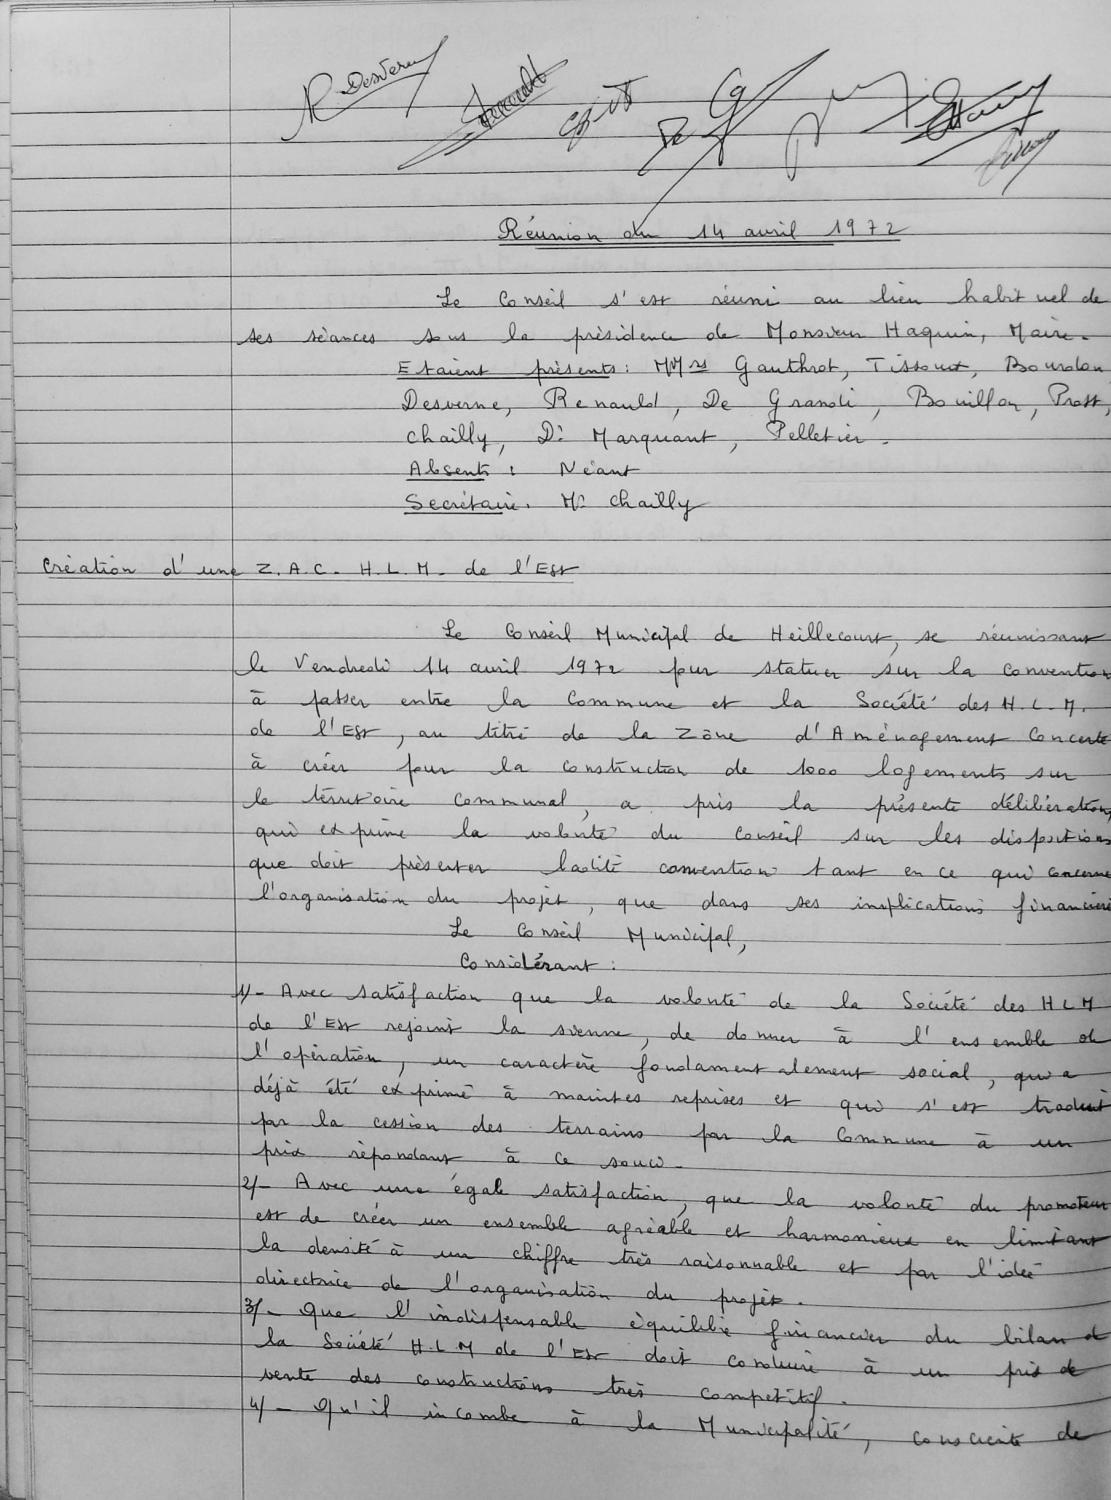 Desverne
Réunion du 14 avril 1972
Le Conseil s'est réuni au lieu habituel de
ses séances sous la présidence de Monsieur Haquin, Maire.
Etaient présents : MMrs Gauthrot, Tissoux, Bourdon
Desverne, Renauld, De Grandi, Bouillon, Prost,
Chailly, Dr Marquant, Pelletier.
Absents : Néant
Secrétaire. Mr Chailly
Création d'une Z.A.C. H.L.M. de l'Est
Le Conseil Municipal de Heillecourt, se réunissant
le Vendredi 14 avril 1972 pour statuer sur la convention
à passer entre la Commune et la Société des H.L.M.
de l'Est, au titre de la Zone d'Aménagement Concerté
à créer pour la construction de 1000 logements sur
le territoire communal, a pris la présente délibération,
qui exprime la volonté du Conseil sur les dispositions
que doit présenter ladite convention tant en ce qui concerne
l'organisation du projet, que dans ses implications financières
Le Conseil Municipal,
Considérant :
1/- Avec satisfaction que la volonté de la Société des HLM
de l'Est rejoint la sienne, de donner à l'ensemble de
l'opération, un caractère fondamentalement social, qui a
déjà été exprimé à maintes reprises et qui s'est traduit
par la cession des terrains par la Commune à un
prix répondant à ce souci.
2/- Avec une égale satisfaction, que la volonté du promoteur
est de créer un ensemble agréable et harmonieux en limitant
la densité à un chiffre très raisonnable et par l'idée
directrice de l'organisation du projet.
3/- Que l'indispensable équilibre financier du bilan de
la Société H.L.M de l'Est doit conduire à un prix de
vente des constructions très compétitif.
4/- Qu'il incombe à la Municipalité, consciente de